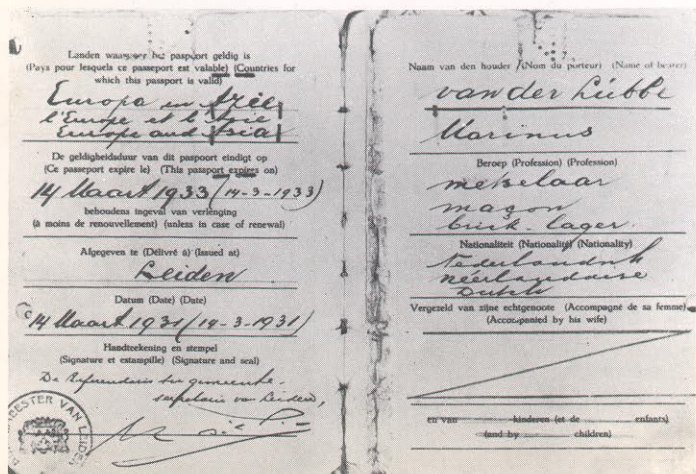 Landen waarvoor het paspoort geldig is
(Pays pour lesquels ce passeport est valable) (Countries for
which this passport is valid)
Europa en Azië
l'Europe et l'Asie
Europe and Asia
De geldigheidsduur van dit paspoort eindigt op
(Ce passeport expire le) (This passport expires on)
14 Maart 1933 (14-3-1933)
behoudens ingeval van verlenging
(à moins de renouvellement) (unless in case of renewal)
Afgegeven te (Délivré à) (Issued at)
Leiden
Datum (Date) (Date)
14 Maart 1931 (14-3-1931)
Handteekening en stempel
(Signature et estampille) (Signature and seal)
De Referendaris ter gemeente-
secretarie van Leiden,
MEESTER VAN LEIDEN
Naam van den houder (Nom du porteur) (Name of bearer)
van der Lübbe
Marinus
Beroep (Profession) (Profession)
metselaar
maçon
brick-layer
Nationaliteit (Nationalité) (Nationality)
Nederlandsch
néerlandaise
Dutch
Vergezeld van zijne echtgenoote (Accompagné de sa femme)
(Accompanied by his wife)
en van kinderen (et de enfants)
(and by children)